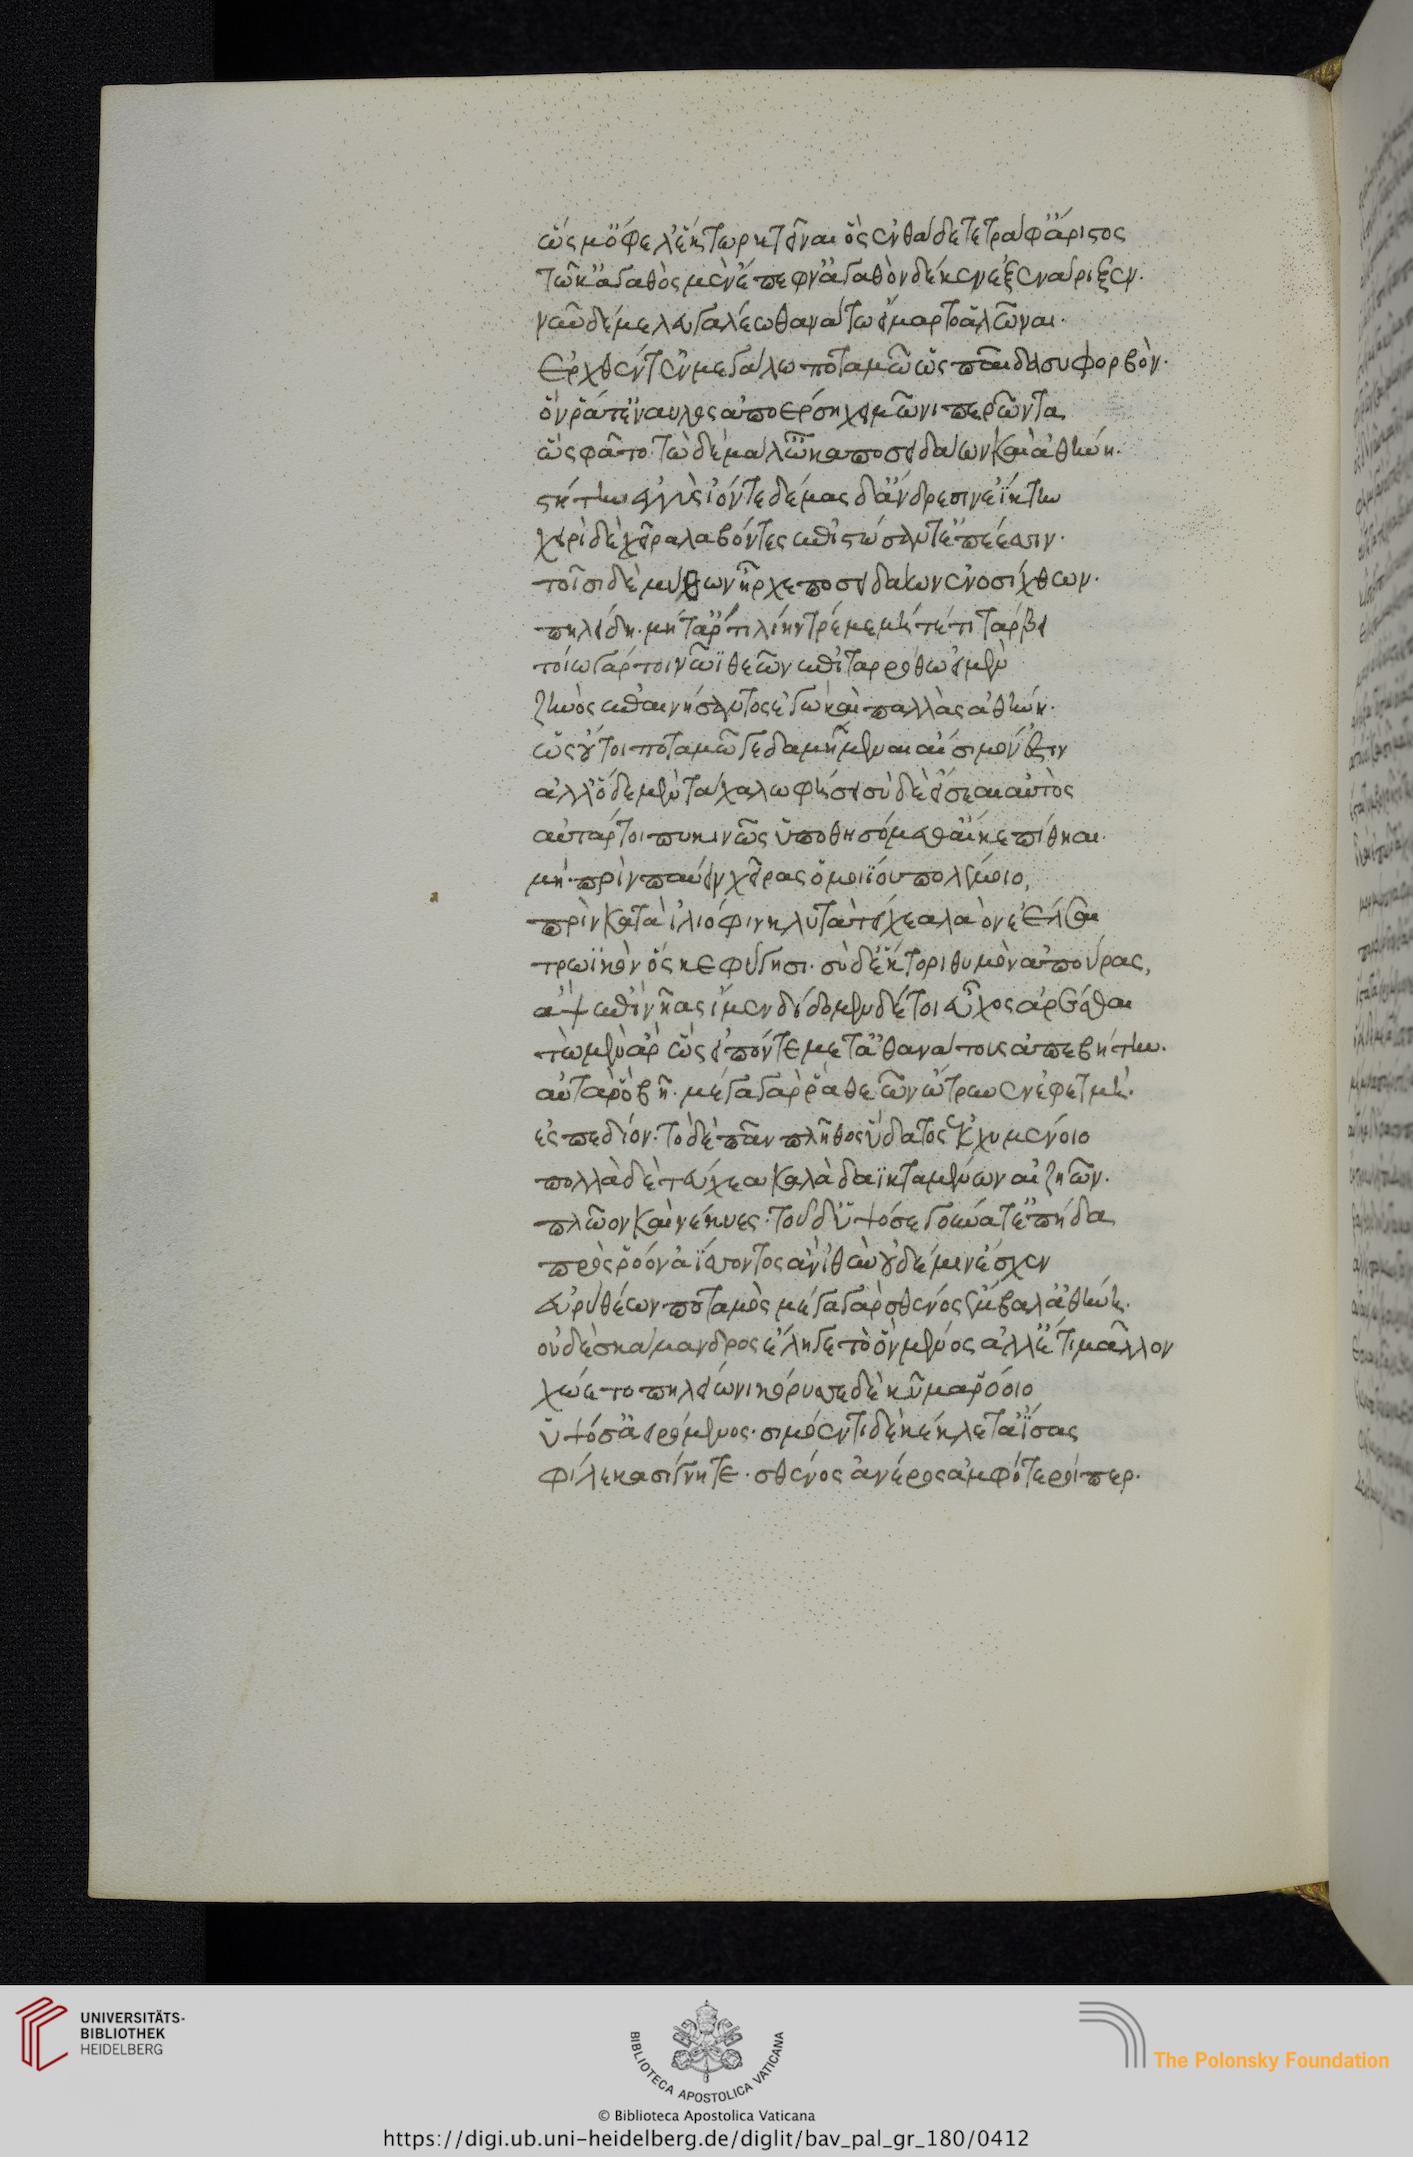 ὥς μ' ὄφελ' ἕκτωρ κτεῖναι ὃς ἐνθάδε τέτραφ' ἄριστος
τῶ κ' ἀγαθὸς μὲν ἔπεφν' ἀγαθὸν δέ κεν ἐξενάριξεν.
νῦν δέ με λευγαλέω θανάτω εἵμαρτο ἁλῶναι.
ἐρχθέντ' ἐν μεγάλω ποταμῶ ὡς παῖδα συφορβὸν.
ὅν ῥά τ' ἔναυλος ἀποέρση χειμῶνι περῶντα
ὣς φάτο. τῶ δὲ μάλ' ὦκα ποσειδάων καὶ ἀθήνη.
στήτην ἐγγὺς ἰόντε δέμας δ' ἄνδρεσιν ἐΐκτην
χειρὶ δὲ χεῖρα λαβόντες ἐπιστώσαντ' ἐπέεσσιν.
τοῖσι δὲ μύθων ἦρχε ποσειδάων ἐνοσίχθων.
πηλείδη. μήτ' ἄρ τι λίην τρέμε μήτέ τι τάρβει
τοίω γάρ τοι νῶϊ θεῶν ἐπιταρρόθω εἰμὲν
ζηνὸς ἐπαινήσαντος ἐγὼ καὶ παλλὰς ἀθήνη.
ὡς οὔ τοι ποταμῶ γε δαμήμεναι αἴσιμόν ἐστιν
ἀλλ' ὅδε μὲν τάχα λωφήσει σὺ δὲ εἴσεαι αὐτὸς
αὐτάρ τοι πυκινῶς ὑποθησόμεθ' αἴ κε πίθηαι.
μὴ. πρὶν παύειν χεῖρας ὁμοιΐου πολέμοιο,
πρὶν κατὰ ἰλιόφιν κλυτὰ τείχεα λαὸν ἐέλσαι
τρωϊκὸν ὅς κε φύγησι. σὺ δ' ἕκτορι θυμὸν ἀπούρας,
ἂψ ἐπὶ νῆας ἴμεν δίδομεν δέ τοι εὖχος ἀρέσθαι
τὼ μὲν ἄρ ὣς εἰπόντε μετ' ἀθανάτους ἀπεβήτην.
αὐτὰρ ὃ βῆ. μέγα γάρ ῥα θεῶν ὤτρυνεν ἐφετμὴ.
ἐς πεδίον. τὸ δὲ πᾶν πλῆθος ὕδατος ἐκχυμένοιο
πολλὰ δὲ τεύχεα καλὰ δαϊκταμένων αἰζηῶν.
πλῶον καὶ νέκυες. τοῦ δ' ὑψόσε γούνατ' ἐπήδα
πρὸς ῥόον ἀΐσσοντος ἀν' ἰθὺν οὐδέ μιν ἔσχεν
εὐρυρέων ποταμὸς μέγα γὰρ σθένος ἔμβαλ' ἀθήνη.
οὐδὲ σκάμανδρος ἔληγε τὸ ὃν μένος ἀλλ' ἔτι μᾶλλον
χώετο πηλείωνι κόρυσσε δὲ κῦμα ῥόοιο
ὑψόσ' ἀειρόμενος. σιμόεντι δὲ κέκλετ' ἀΐσας
φίλε κασίγνητε. σθένος ἀνέρος ἀμφότεροί περ.
UNIVERSITÄTS-
BIBLIOTHEK
HEIDELBERG
BIBLIOTECA APOSTOLICA VATICANA
The Polonsky Foundation
© Biblioteca Apostolica Vaticana
https://digi.ub.uni-heidelberg.de/diglit/bav_pal_gr_180/0412